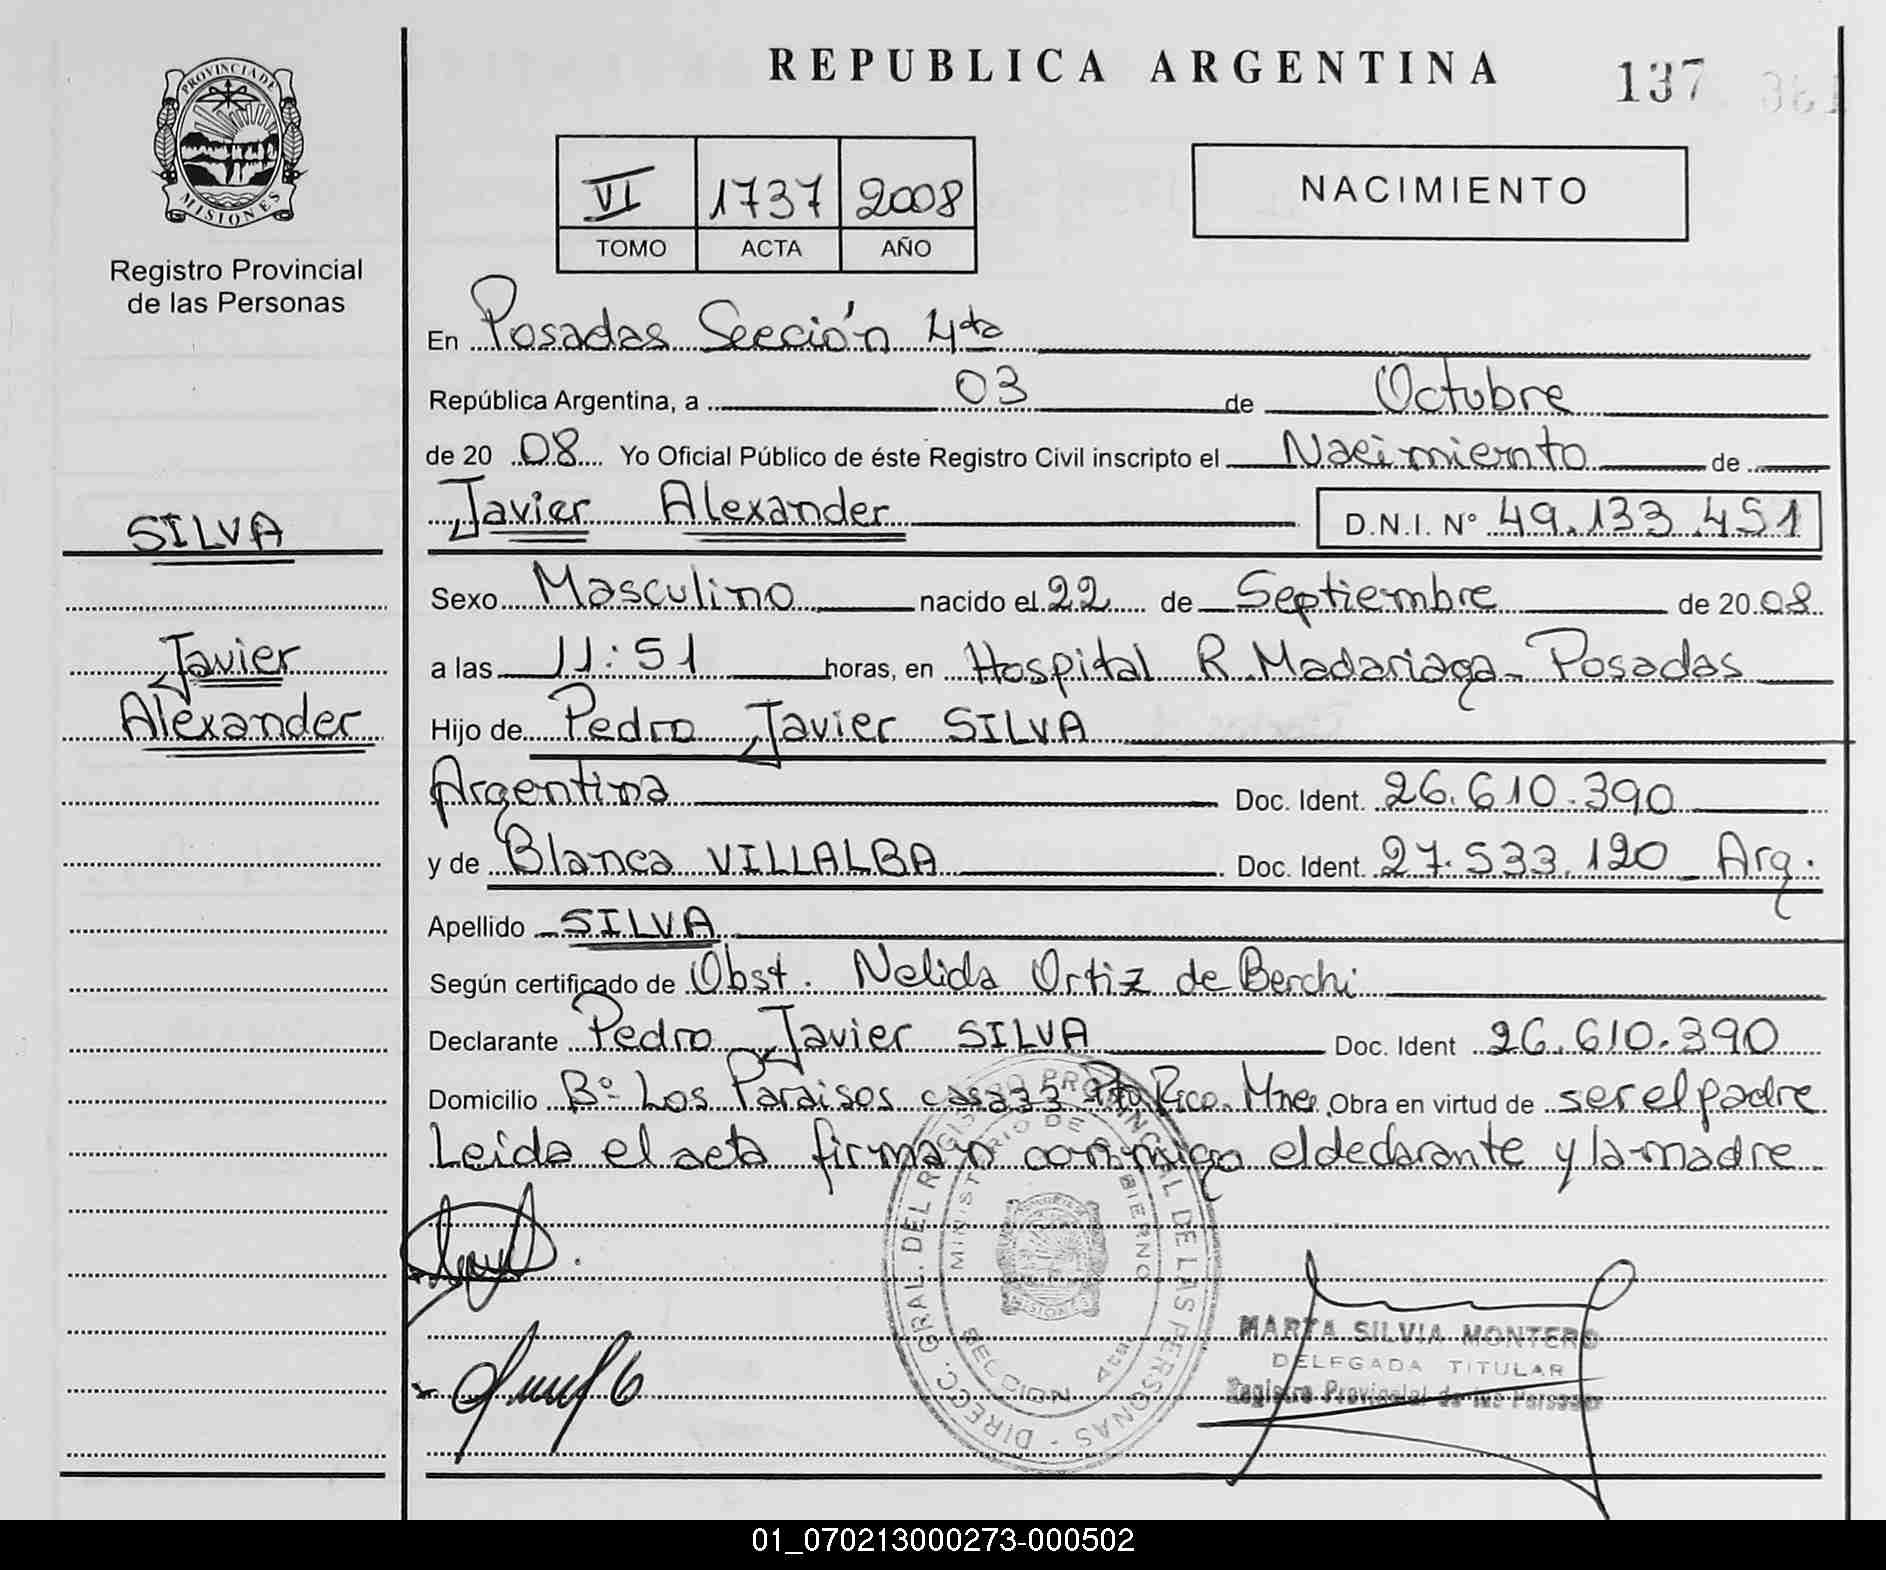 REPUBLICA ARGENTINA
137
PROVINCIA DE
MISIONES
Registro Provincial
de las Personas
VI 1737 2008
TOMO ACTA AÑO
NACIMIENTO
En Posadas Sección 4ta
República Argentina, a 03 de Octubre
de 20 08 Yo Oficial Público de éste Registro Civil inscripto el Nacimiento de
SILVA
Javier Alexander D.N.I. N° 49.133.451
Sexo Masculino nacido el 22 de Septiembre de 20 08
Javier
a las 11:51 horas, en Hospital R. Madariaga - Posadas
Alexander
Hijo de Pedro Javier SILVA
Argentina Doc. Ident. 26.610.390
y de Blanca VILLALBA Doc. Ident. 27.533.120 - Arg.
Apellido SILVA
Según certificado de Obst. Nelida Ortiz de Berchi
Declarante Pedro Javier SILVA Doc. Ident 26.610.390
Domicilio B° Los Paraisos casa 33 Pto Rico. Mnes. Obra en virtud de ser el padre
Leida el acta firman conmigo el declarante y la madre
DIRECC. GRAL. DEL REGISTRO PROVINCIAL DE LAS PERSONAS
MINISTERIO DE GOBIERNO
MISIONES
SECCION 4ta
MARTA SILVIA MONTERO
DELEGADA TITULAR
Registro Provincial de las Personas
01_070213000273-000502